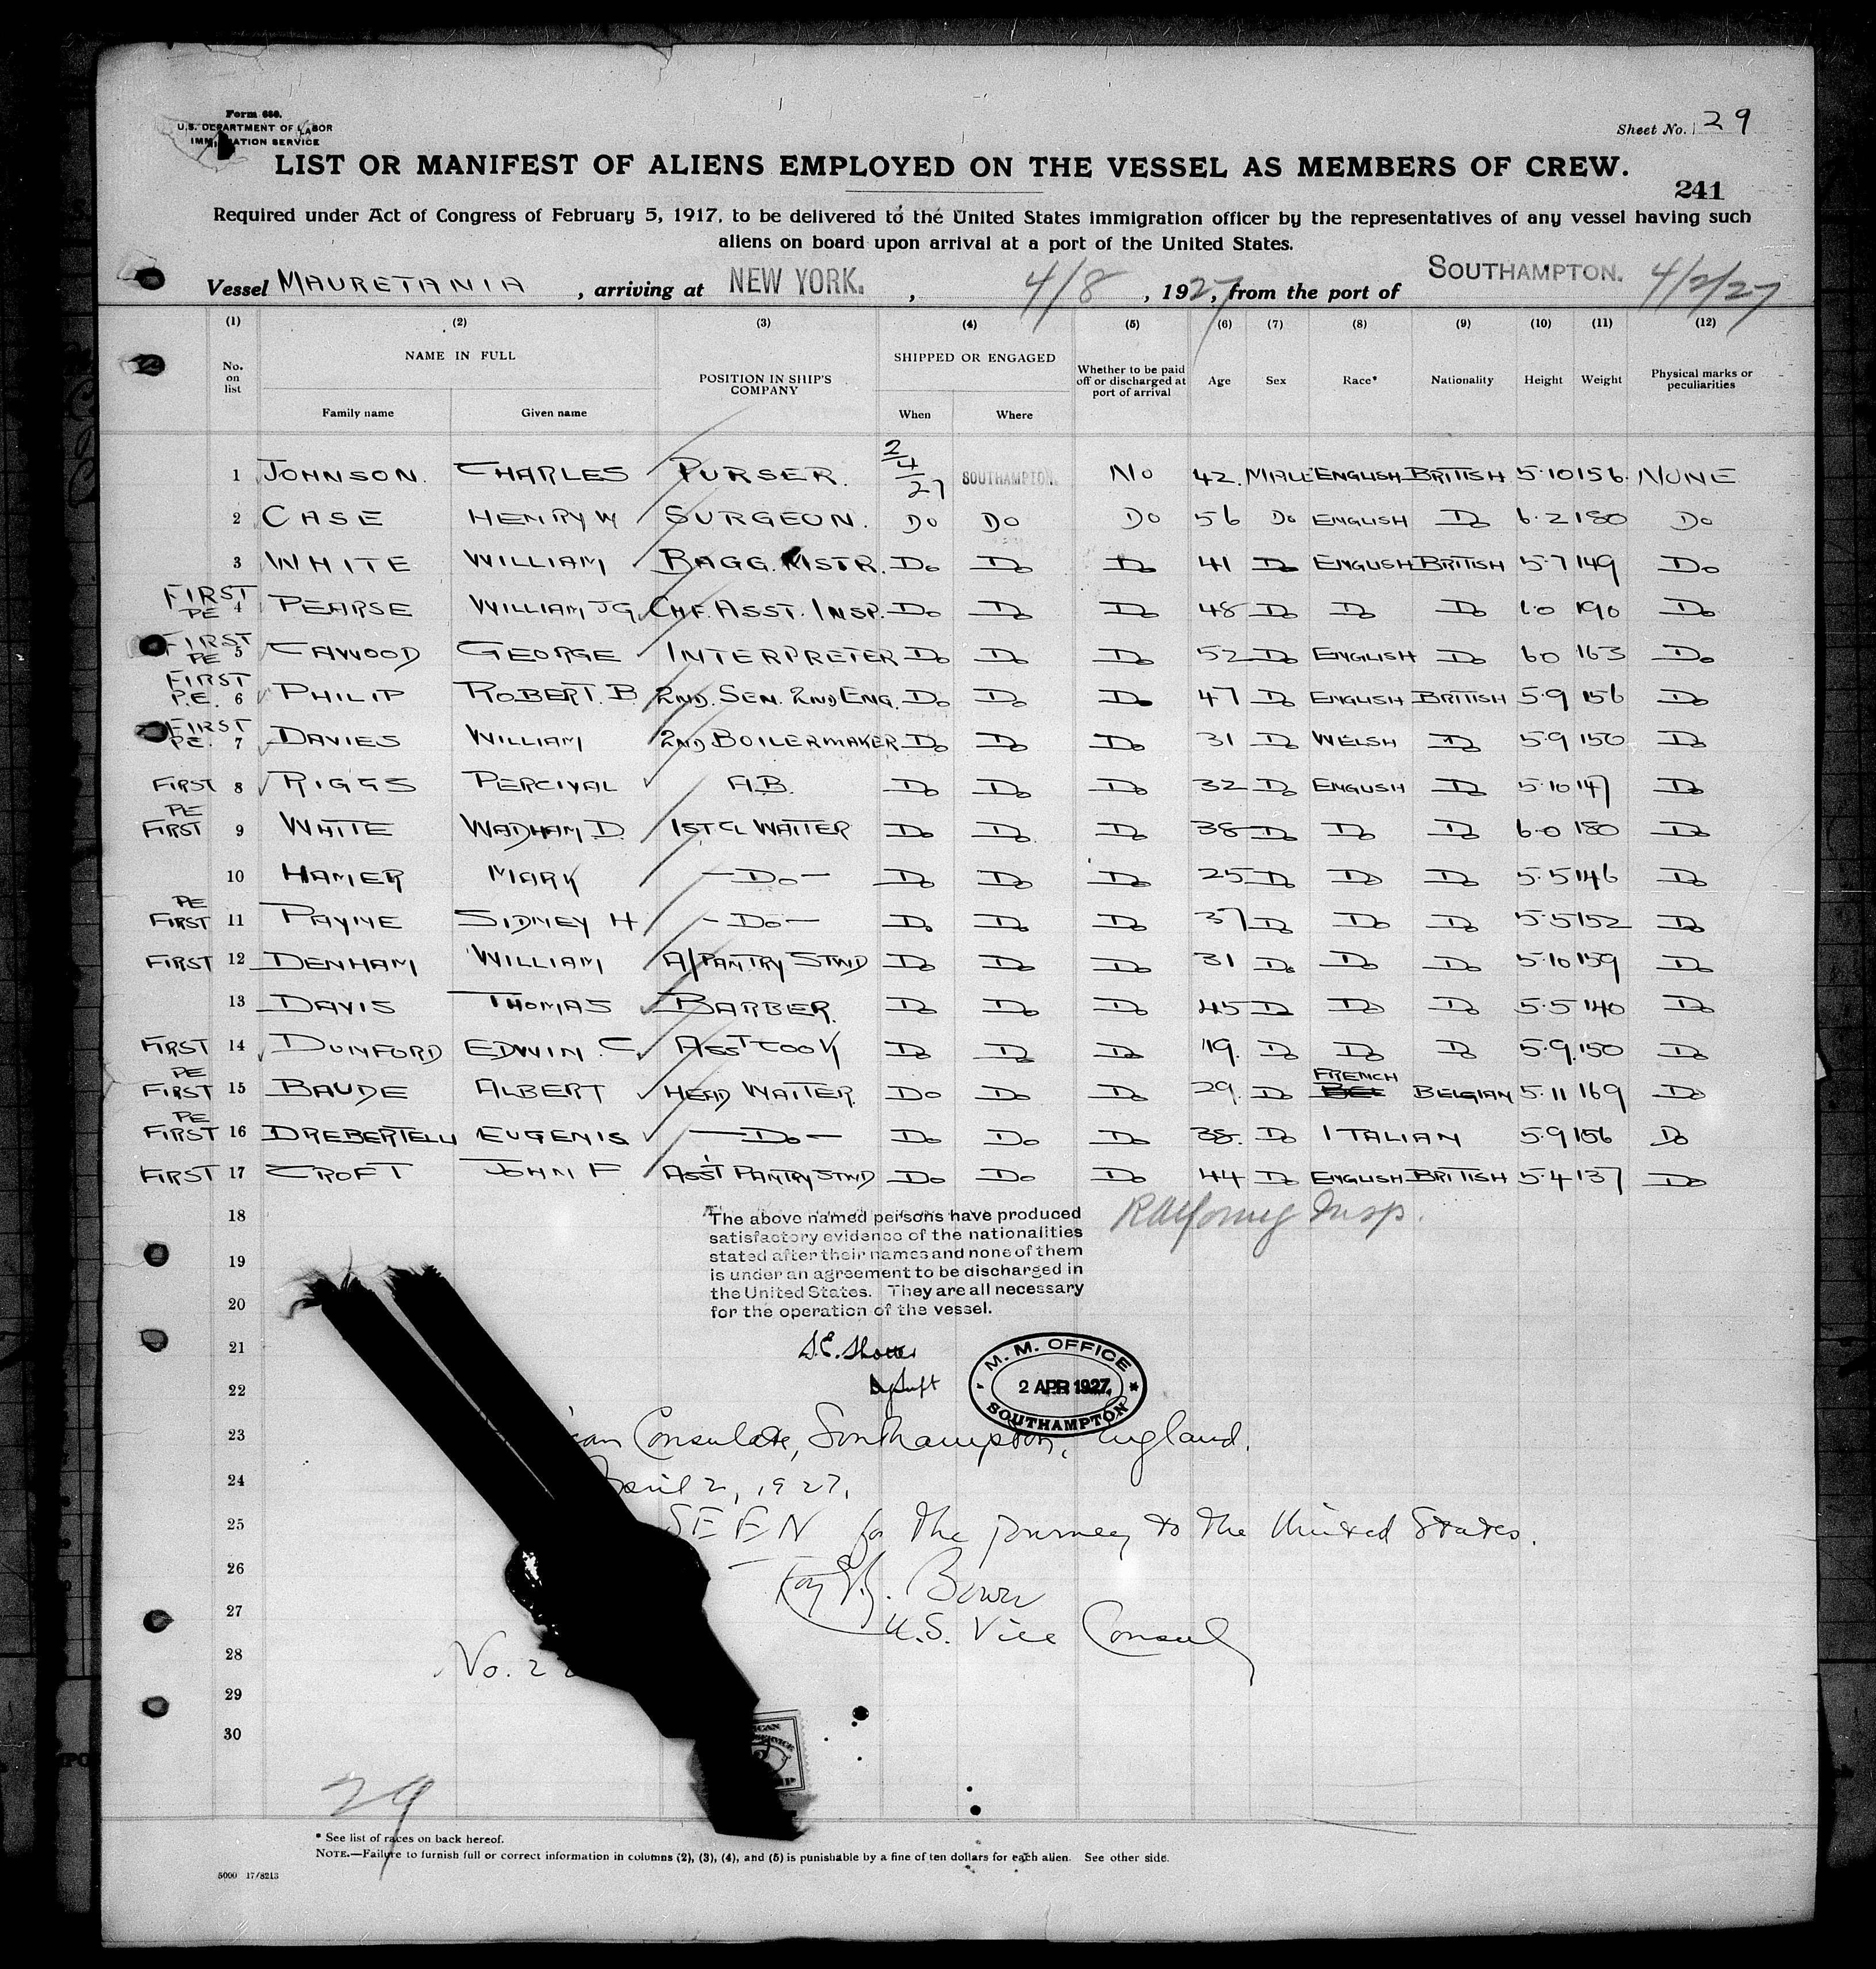 Form 680.
U.S. DEPARTMENT OF LABOR
IMMIGRATION SERVICE
Sheet No. 29
LIST OR MANIFEST OF ALIENS EMPLOYED ON THE VESSEL AS MEMBERS OF CREW.
241
Required under Act of Congress of February 5, 1917, to be delivered to the United States immigration officer by the representatives of any vessel having such
aliens on board upon arrival at a port of the United States.
Vessel MAURETANIA, arriving at NEW YORK., 4/8, 1927, from the port of SOUTHAMPTON. 4/2/27
(1) (2) (3) (4) (5) (6) (7) (8) (9) (10) (11) (12)
No. on list NAME IN FULL POSITION IN SHIP'S COMPANY SHIPPED OR ENGAGED Whether to be paid off or discharged at port of arrival Age Sex Race* Nationality Height Weight Physical marks or peculiarities
Family name Given name When Where
1 JOHNSON. CHARLES PURSER. 2/4/27 SOUTHAMPTON. NO 42. MALE ENGLISH BRITISH 5·10 156. NONE
2 CASE HENRY W SURGEON. DO DO DO 56 DO ENGLISH DO 6·2 180 DO
3 WHITE WILLIAM BAGG. MSTR. DO DO DO 41 DO ENGLISH BRITISH 5·7 149 DO
FIRST PE 4 PEARSE WILLIAM J G. CHF. ASST. INSP. DO DO DO 48 DO DO DO 6·0 190 DO
FIRST PE 5 CAWOOD GEORGE INTERPRETER DO DO DO 52 DO ENGLISH DO 6·0 163 DO
FIRST P.E. 6 PHILIP ROBERT. B 2ND. SEN. 2ND ENG. DO DO DO 47 DO ENGLISH BRITISH 5·9 156 DO
FIRST PE. 7 DAVIES WILLIAM 2ND BOILERMAKER DO DO DO 31 DO WELSH DO 5·9 150 DO
FIRST 8 RIGGS PERCIVAL A.B. DO DO DO 32 DO ENGLISH DO 5·10 147 DO
PE FIRST 9 WHITE WADHAM D. 1ST CL WAITER DO DO DO 38 DO DO DO 6·0 180 DO
10 HAMER MARK —DO— DO DO DO 25 DO DO DO 5·5 146 DO
PE FIRST 11 PAYNE SIDNEY H —DO— DO DO DO 37 DO DO DO 5·5 152 DO
FIRST 12 DENHAM WILLIAM A/PANTRY STWD DO DO DO 31 DO DO DO 5·10 159 DO
13 DAVIS THOMAS BARBER. DO DO DO 45 DO DO DO 5·5 140 DO
FIRST 14 DUMFORD EDWIN. C. ASST COOK DO DO DO 19. DO DO DO 5·9. 150 DO
PE FIRST 15 BAUDE ALBERT HEAD WAITER. DO DO DO 29. DO FRENCH BELGIAN 5·11 169 DO
PE FIRST 16 DREBERTELLI EUGENIS —DO— DO DO DO 38. DO ITALIAN 5·9 156 DO
FIRST 17 CROFT JOHN F ASS'T PANTRY STWD DO DO DO 44 DO ENGLISH BRITISH 5·4 137 DO
18
The above named persons have produced
satisfactory evidence of the nationalities
stated after their names and none of them
is under an agreement to be discharged in
the United States. They are all necessary
for the operation of the vessel.
Insp.
19
20
21
22
M. M. OFFICE
2 APR 1927
SOUTHAMPTON
23 Consulate, Southampton, England.
24 April 2, 1927.
25 SEEN for the journey to the United States.
26
27 U.S. Vice Consul
28 No. 22
29
30
29
* See list of races on back hereof.
NOTE.—Failure to furnish full or correct information in columns (2), (3), (4), and (5) is punishable by a fine of ten dollars for each alien. See other side.
5000 17/8213